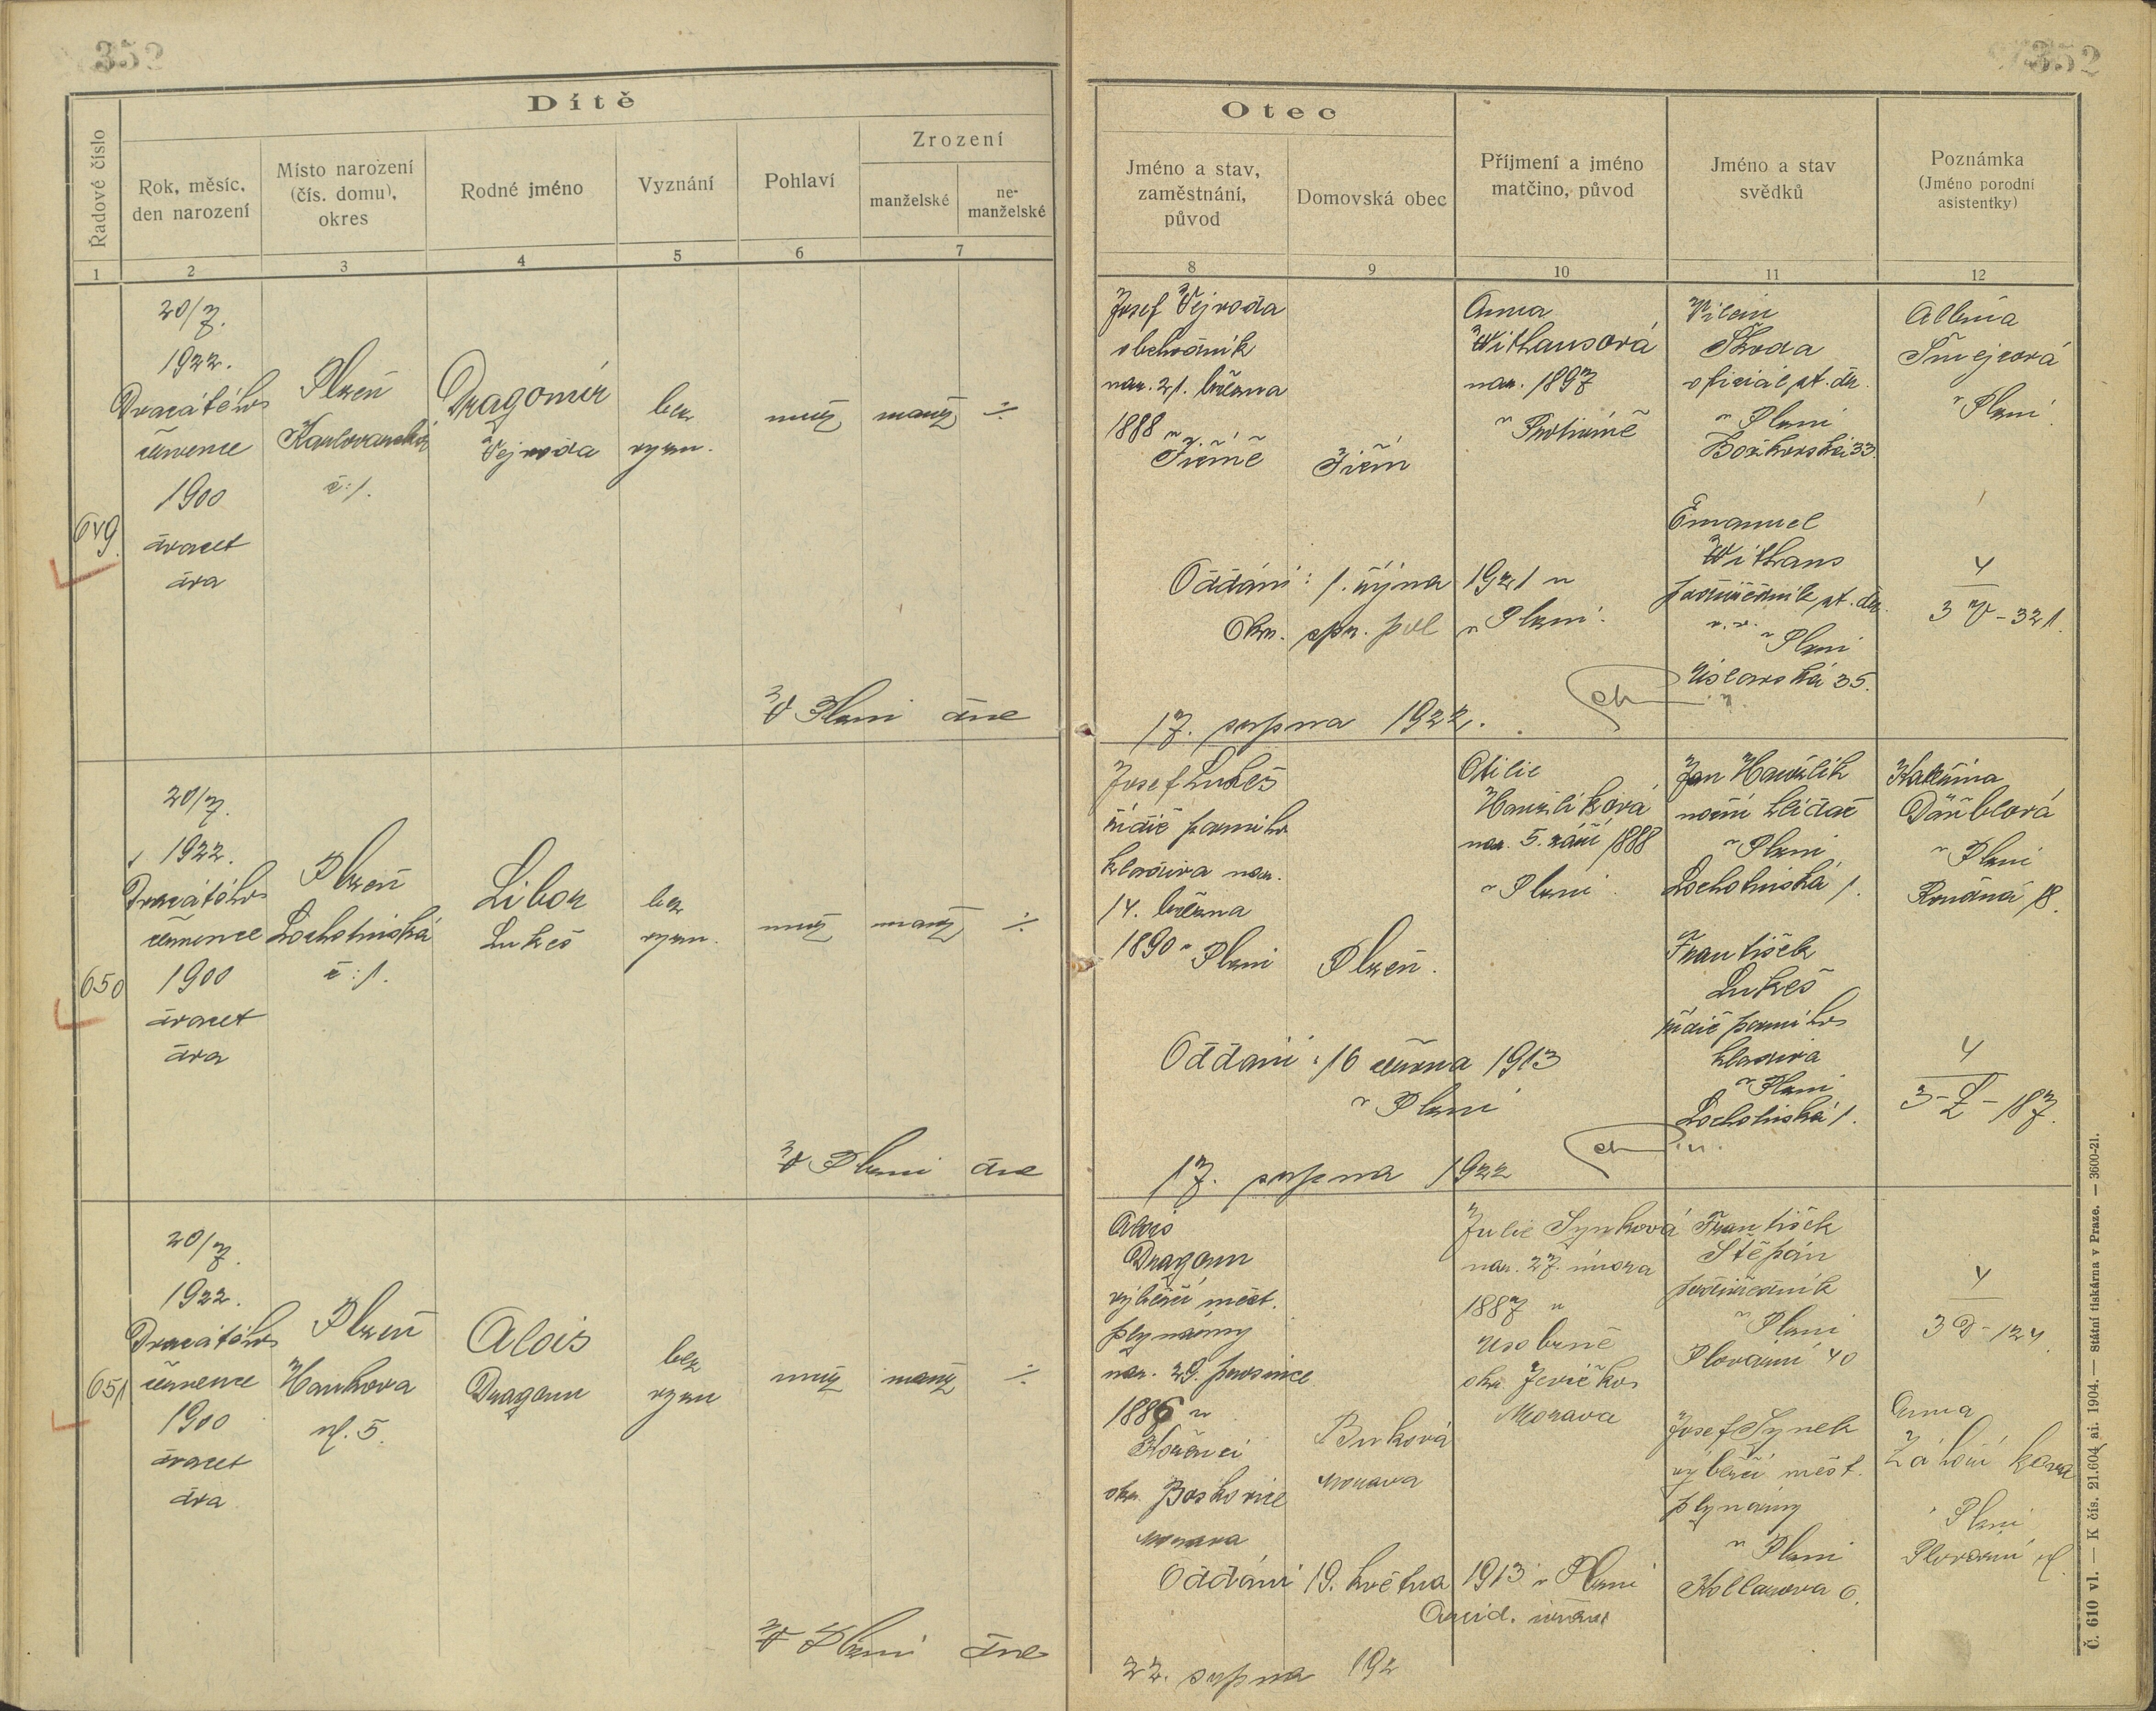 352
352
Dítě
Otec
Řadové číslo
Rok, měsíc,
den narození
Místo narození
(čís. domu),
okres
Rodné jméno
Vyznání
Pohlaví
Zrození
manželské
ne-
manželské
Jméno a stav,
zaměstnání,
původ
Domovská obec
Příjmení a jméno
matčino, původ
Jméno a stav
svědků
Poznámka
(Jméno porodní
asistentky)
1
2
3
4
5
6
7
8
9
10
11
12
649.
20/7.
1922.
Dvacátého
července
1900
dvacet
dva
Plzeň
Karlovarská
č: 1.
Dragomír
Vejvoda
bez
vyzn.
muž
manž
÷
Josef Vejvoda
obchodník
nar. 21. března
1888 v
Jičíně
Jičín
Anna
Withausová
nar. 1897
v Protivíně
Vilém
Škoda
oficiál st. dr.
v Plzni
Božkovská 33.
Emanuel
Withaus
podúředník st. dr.
v. v.
v Plzni
Úslavská 35.
Albína
Šmejcová
v Plzni
4
3 V - 321.
Oddáni: 1. října 1921 u
Okr. spr. pol v Plzni.
V Plzni dne
17. srpna 1922.
650
20/7.
1922.
Dvacátého
července
1900
dvacet
dva
Plzeň
Lochotínská
č: 1.
Libor
Lukeš
bez
vyzn.
muž
manž
÷
Josef Lukeš
řidič parního
kladiva nar.
14. března
1890 v Plzni
Plzeň.
Otilie
Havlíková
nar. 5. září 1888
v Plzni.
Jan Havlík
noční hlídač
v Plzni
Lochotínská 1.
František
Lukeš
řidič parního
kladiva
v Plzni
Lochotínská 1.
Kateřina
v Plzni
Koudná 18.
4
3 - L - 187.
Oddáni: 16 června 1913
v Plzni
V Plzni dne
17. srpna 1922
651.
20/7.
1922.
Dvacátého
července
1900
dvacet
dva
Plzeň
Hankova
ul. 5.
Alois
Dragoun
bez
vyzn
muž
manž
÷
Alois
Dragoun
výběrčí měst.
plynárny
nar. 29. prosince
1886 v
Hořenci
okr. Boskovice
Morava
Burková
Morava
Julie Synková
nar. 27. února
1887 v
Úsobrně
okr. Jevíčko
Morava
František
Štěpán
podúředník
v Plzni
Plovární 40
Josef Synek
výběrčí měst.
plynárny
v Plzni
Kollarova 6.
4
3 D - 124.
Anna
v Plzni
Plovární ul.
Oddáni 19. května 1913 v Plzni
V Plzni dne
22. srpna 192
Č. 610 vl. — K čís. 21.604 ai. 1904. — Státní tiskárna v Praze. — 3600-21.